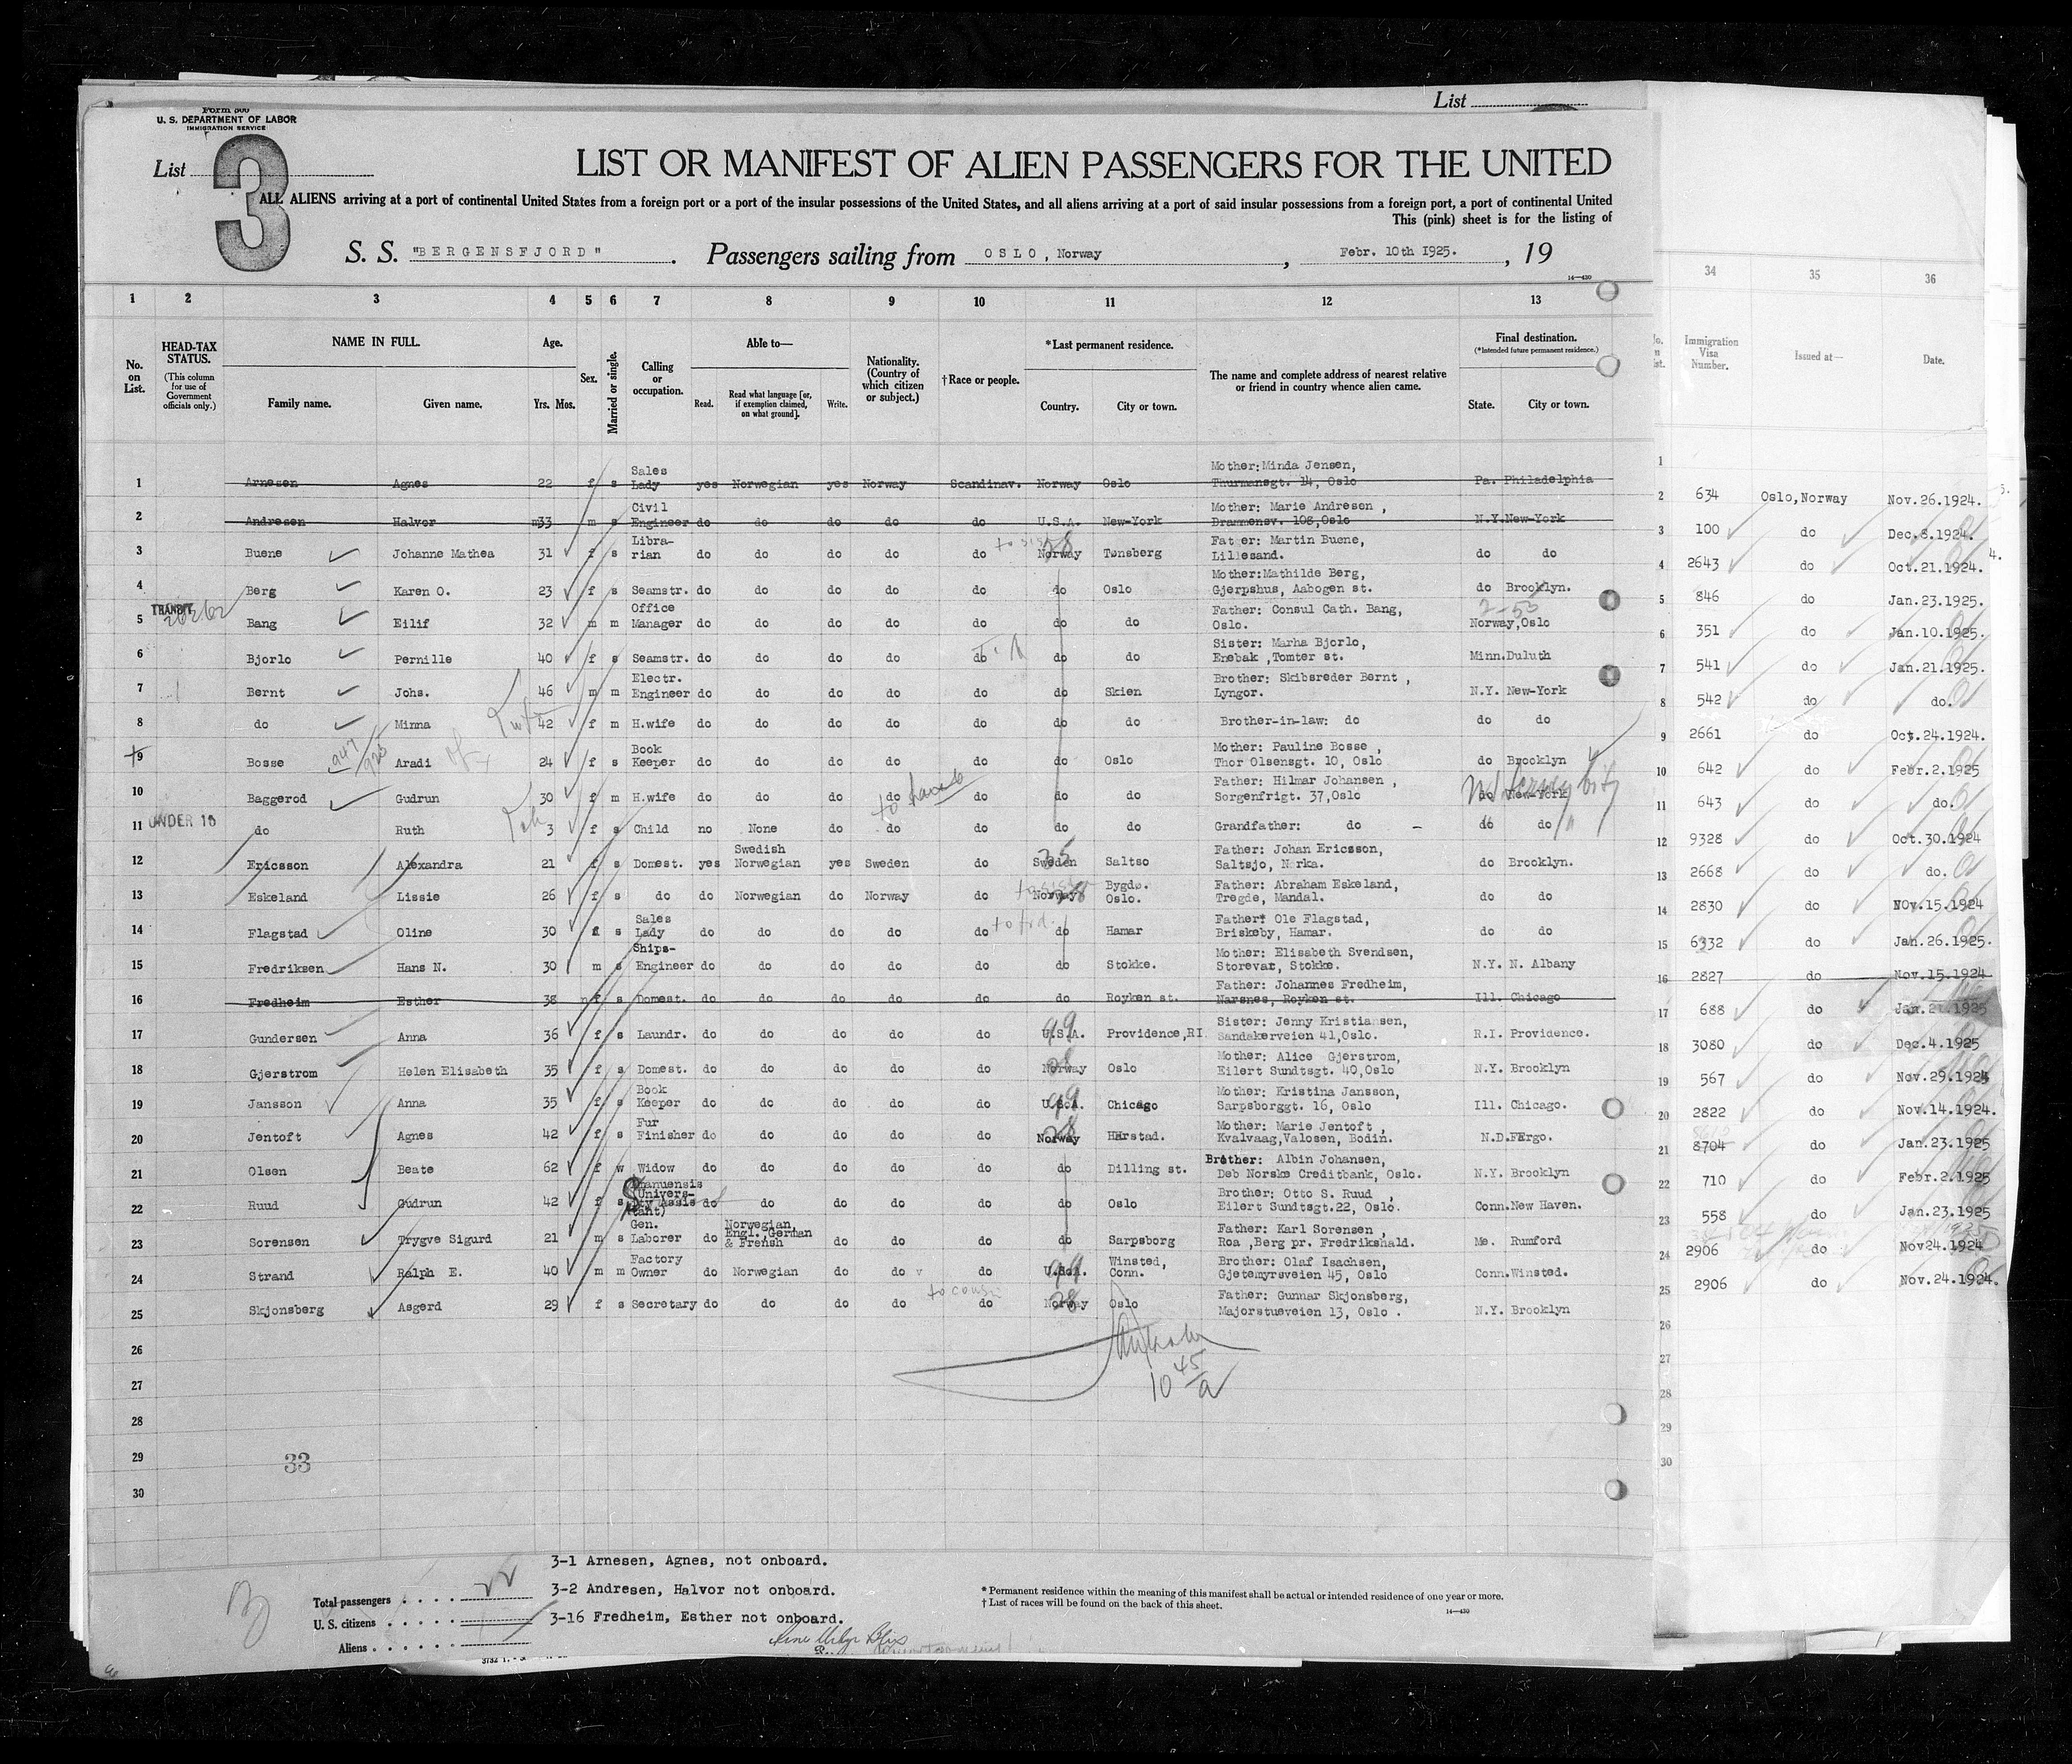 List
Form 500
U. S. DEPARTMENT OF LABOR
IMMIGRATION SERVICE
List 3
LIST OR MANIFEST OF ALIEN PASSENGERS FOR THE UNITED
ALL ALIENS arriving at a port of continental United States from a foreign port or a port of the insular possessions of the United States, and all aliens arriving at a port of said insular possessions from a foreign port, a port of continental United
This (pink) sheet is for the listing of
S. S. "BERGENSFJORD". Passengers sailing from OSLO, Norway, Febr. 10th 1925., 19
14—430
1 2 3 4 5 6 7 8 9 10 11 12 13 34 35 36
No. on List.
HEAD-TAX STATUS.
(This column for use of Government officials only.)
NAME IN FULL.
Family name. Given name.
Age.
Yrs. Mos.
Sex.
Married or single.
Calling or occupation.
Able to—
Read. Read what language [or, if exemption claimed, on what ground]. Write.
Nationality. (Country of which citizen or subject.)
†Race or people.
*Last permanent residence.
Country. City or town.
The name and complete address of nearest relative or friend in country whence alien came.
Final destination.
(*Intended future permanent residence.)
State. City or town.
Immigration Visa Number. Issued at— Date.
1 Arnesen Agnes 22 f s Sales Lady yes Norwegian yes Norway Scandinav. Norway Oslo Mother: Minda Jensen, Thurmansgt. 14, Oslo Pa. Philadelphia
2 Andresen Halvor m33 m s Civil Engineer do do do do do U.S.A. New-York Mother: Marie Andresen, Drammensv. 108,Oslo N.Y. New-York
3 Buene Johanne Mathea 31 f s Libra-rian do do do do do Norway Tønsberg Father: Martin Buene, Lillesand. do do
4 Berg Karen O. 23 f s Seamstr. do do do do do do Oslo Mother:Mathilde Berg, Gjerpshus, Aabogen st. do Brooklyn.
TRANSIT
5 Bang Eilif 32 m m Office Manager do do do do do do do Father: Consul Cath. Bang, Oslo. Norway,Oslo
6 Bjorlo Pernille 40 f s Seamstr. do do do do do do do Sister: Marha Bjorlo, Enebak ,Tomter st. Minn.Duluth
7 Bernt Johs. 46 m m Electr. Engineer do do do do do do Skien Brother: Skibsreder Bernt , Lyngor. N.Y. New-York
8 do Minna 42 f m H.wife do do do do do do do Brother-in-law: do do do
9 Bosse Aradi 24 f s Book Keeper do do do do do do Oslo Mother: Pauline Bosse , Thor Olsensgt. 10, Oslo do Brooklyn
10 Baggerod Gudrun 30 f m H.wife do do do do do do do Father: Hilmar Johansen , Sorgenfrigt. 37,Oslo do New-York
UNDER 16
11 do Ruth 3 f s Child no None do do do do do Grandfather: do do do
12 Ericsson Alexandra 21 f s Domest. yes Swedish Norwegian yes Sweden do Sweden Saltso Father: Johan Ericsson, Saltsjo, Nerka. do Brooklyn.
13 Eskeland Lissie 26 f s do do Norwegian do Norway do Norway Bygdø. Oslo. Father: Abraham Eskeland, Tregde, Mandal. do do
14 Flagstad Oline 30 f s Sales Lady do do do do do do Hamar Father: Ole Flagstad, Briskeby, Hamar. do do
15 Fredriksen Hans N. 30 m s Ships-Engineer do do do do do do Stokke. Mother: Elisabeth Svendsen, Storevar, Stokke. N.Y. N. Albany
16 Fredheim Esther 38 f s Domest. do do do do do do Royken st. Father: Johannes Fredheim, Narsnes, Royken st. Ill. Chicago
17 Gundersen Anna 36 f s Laundr. do do do do do U.S.A. Providence,RI. Sister: Jenny Kristiansen, Sandakerveien 41,Oslo. R.I. Providence.
18 Gjerstrom Helen Elisabeth 35 f s Domest. do do do do do Norway Oslo Mother: Alice Gjerstrom, Eilert Sundtsgt. 40,Oslo N.Y. Brooklyn
19 Jansson Anna 35 f s Book Keeper do do do do do U.S.A. Chicago Mother: Kristina Jansson, Sarpsborggt. 16, Oslo Ill. Chicago.
20 Jentoft Agnes 42 f s Fur Finisher do do do do do Norway Harstad. Mother: Marie Jentoft , Kvalvaag,Valosen, Bodin. N.D. Fergo.
21 Olsen Beate 62 f w Widow do do do do do do Dilling st. Brother: Albin Johansen, Deb Norske Creditbank, Oslo. N.Y. Brooklyn
22 Ruud Gudrun 42 f s do do do do do do Oslo Brother: Otto S. Ruud , Eilert Sundtsgt.22, Oslo. Conn.New Haven.
23 Sorensen Trygve Sigurd 21 m s Gen. Laborer do Norwegian, Engl.,German & Frensh do do do do Sarpsborg Father: Karl Sorensen , Roa ,Berg pr. Fredrikshald. Me. Rumford
24 Strand Ralph E. 40 m m Factory Owner do Norwegian do do do U.S.A. Winsted, Conn. Brother: Olaf Isachsen, Gjetemyrsveien 45, Oslo Conn.Winsted.
25 Skjonsberg Asgerd 29 f s Secretary do do do do do Norway Oslo Father: Gunnar Skjonsberg, Majorstueveien 13, Oslo . N.Y. Brooklyn
26
27
28
29
30
33
634 Oslo,Norway Nov.26.1924.
100 do Dec.8.1924.
2643 do Oct.21.1924.
846 do Jan.23.1925.
351 do Jan.10.1925.
541 do Jan.21.1925.
542 do do.
2661 do Oct.24.1924.
642 do Febr.2.1925
643 do do.
9328 do Oct.30.1924
2668 do do.
2830 do NOv.15.1924
6332 do Jan.26.1925.
2827 do Nov.15.1924
688 do Jan.21.1925
3080 do Dec.4.1925
567 do Nov.29.1924
2822 do Nov.14.1924.
8704 do Jan.23.1925
710 do Febr.2.1925
558 Jan.23.1925
2906 do Nov24.1924
2906 do Nov.24.1924.
10 45/a
3-1 Arnesen, Agnes, not onboard.
3-2 Andresen, Halvor not onboard.
3-16 Fredheim, Esther not onboard.
Total passengers 22
U. S. citizens
Aliens
* Permanent residence within the meaning of this manifest shall be actual or intended residence of one year or more.
† List of races will be found on the back of this sheet.
14—430